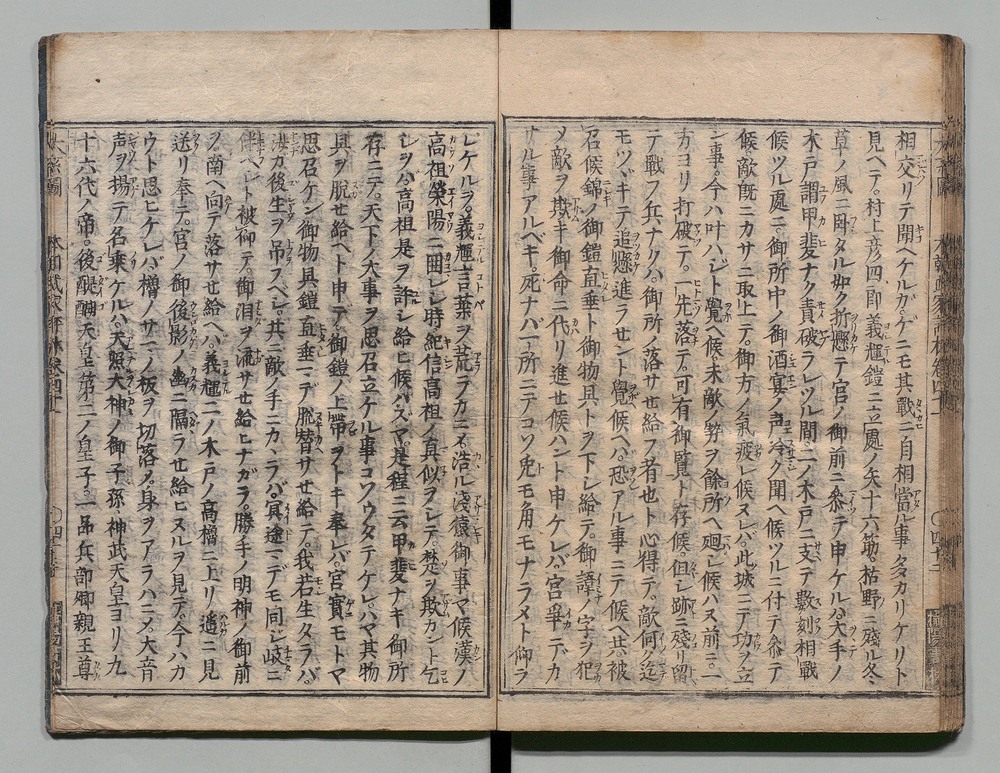 相交リテ聞ヘケルガ。ゲニモ其戰ニ自相當ル事。タカリケリト
見ヘテ。村上彦四郎義輝鎧ニ立處ノ矢十六筋。枯野ニ殘ル冬
草ノ風ニ臥タル如ク折懸テ宮ノ御前ニ參テ申ケルハ。大手ノ
木戸謂甲斐ナク責破ラレツル間。二ノ木戸ニ支テ數刻相戰
候ツル處ニ。御所中ノ御酒宴ノ声冷ク聞ヘ候ツルニ付テ參テ
候。敵既ニカサニ取上テ。御方ノ氣疲レ候ヌレバ此城ニテ功ヲ立
ン事。今ハ叶ハジト覺ヘ候。未敵ノ勢ヲ餘所ヘ廻シ候ハヌ前ニ。一
方ヨリ打破テ。一先落テ。可有御覧ト存候。但シ跡ニ殘リ留
テ戰フ兵ナクハ。御所ノ落サせ給フ者也ト心得テ。敵何迄
モツヾキテ追懸進ラサせント覺候ヘハ。恐アル事ニテ候ヘ共。被
召候錦ノ御鎧直垂ト御物具トヲ下シ給テ。御諱ノ字ヲ犯
メ敵ヲ欺キ御命ニ代リ進せ候ハント申ケレバ。宮爭デカ
サル事アルベキ。死ナバ一所ニテコソ兎モ角モナラメト仰ラ
レケルヲ。義輝言葉ヲ荒ラカニメ。浩ル浅猿御事ヤ候。漢ノ
高祖滎陽ニ囲レシ時。紀信高祖ノ真似ヲシテ。楚ヲ欺カント乞
レシヲハ。高祖是ヲ許シ給ヒ候ハズヤ。是程ニ云甲斐ナキ御所
存ニテ。天下ノ大事ヲ思召立ケル事コソウタテケレ。ハヤ其物
具ヲ脱せ給ヘト申テ。御鎧ノ上帯ヲトキ奉レバ。宮實モトヤ
思召ケン御物具鎧直垂マデ脱替サせ給テ。我若生タラバ。
汝カ後生ヲ吊フベシ。共ニ敵ノ手ニカヽラバ。冥途マデモ同シ岐ニ
伴ベシト被仰テ。御泪ヲ流サせ給ヒナガラ。勝手ノ明神ノ御前
ヲ南ヘ向テ落サせ給ヘハ。義輝二ノ木戸ノ高櫓ニ上リ。遙ニ見
送リ奉テ。宮ノ御後影ノ幽ニ隔ラせ給ヒヌルヲ見テ。今ハカ
ウト思ヒケレバ櫓ノサマノ板ヲ切落メ。身ヲアラハニメ。大音
声ヲ揚テ名乗ケルハ。天照大神ノ御子孫神武天皇ヨリ九
十六代ノ帝。後醍醐天皇第二ノ皇子。一品兵部卿親王尊